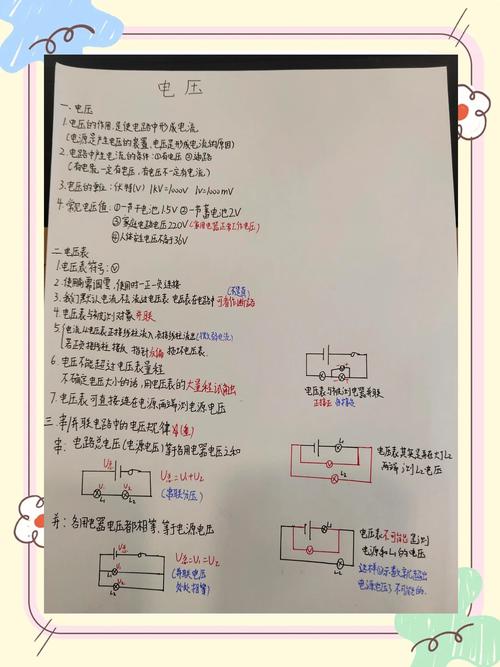 电压
一、电压
1.电压的作用,是使电路中形成电流
(电源是产生电压的装置、电压是形成电流的原因)
2.电路中产生电流的条件:①有电压 ②通路
(有电流一定有电压,有电压不一定有电流)
3.电压的单位:伏特(V) 1kV=1000V 1V=1000mV
4.常见电压值:①一节干电池1.5V ②一节蓄电池2V
③家庭电路电压220V(家用电器正常工作电压)
④人体安全电压不高于36V
二、电压表
1.电压表符号:Ⓥ
2.使用前需调零,使用时一正一负连接
3.我们默认电流不流过电压表 电压表在电路中可看作断路
(不是真)
4.电压表与被测对象并联
5.电流从电压表正接线柱流入,负接线柱流出(微弱电流)
若正负接线柱接反,指针反偏 损坏电压表.
6.电压不能超过电压表量程
不确定电压大小的话,用电压表的大量程试触
7.电压表可直接连在电源两端测电源电压
三、串/并联电路中的电压规律
串:电路总电压(电源电压)等于各用电器电压之和
U总=U1+U2
(串联分压)
U总
U1
U2
L1
L2
并:各用电器电压都相等,等于电源电压
U总=U1=U2
(并联电压
处处相等)
U总
U1
L1
U2
L2
电压表与被测电器并联
正接正 负接负
L1
L2
电压表其实是并在了L2
两端 测L2电压
L1
L2
电压表不可能是测
电源和L1的电压
电源电压了不可能的.